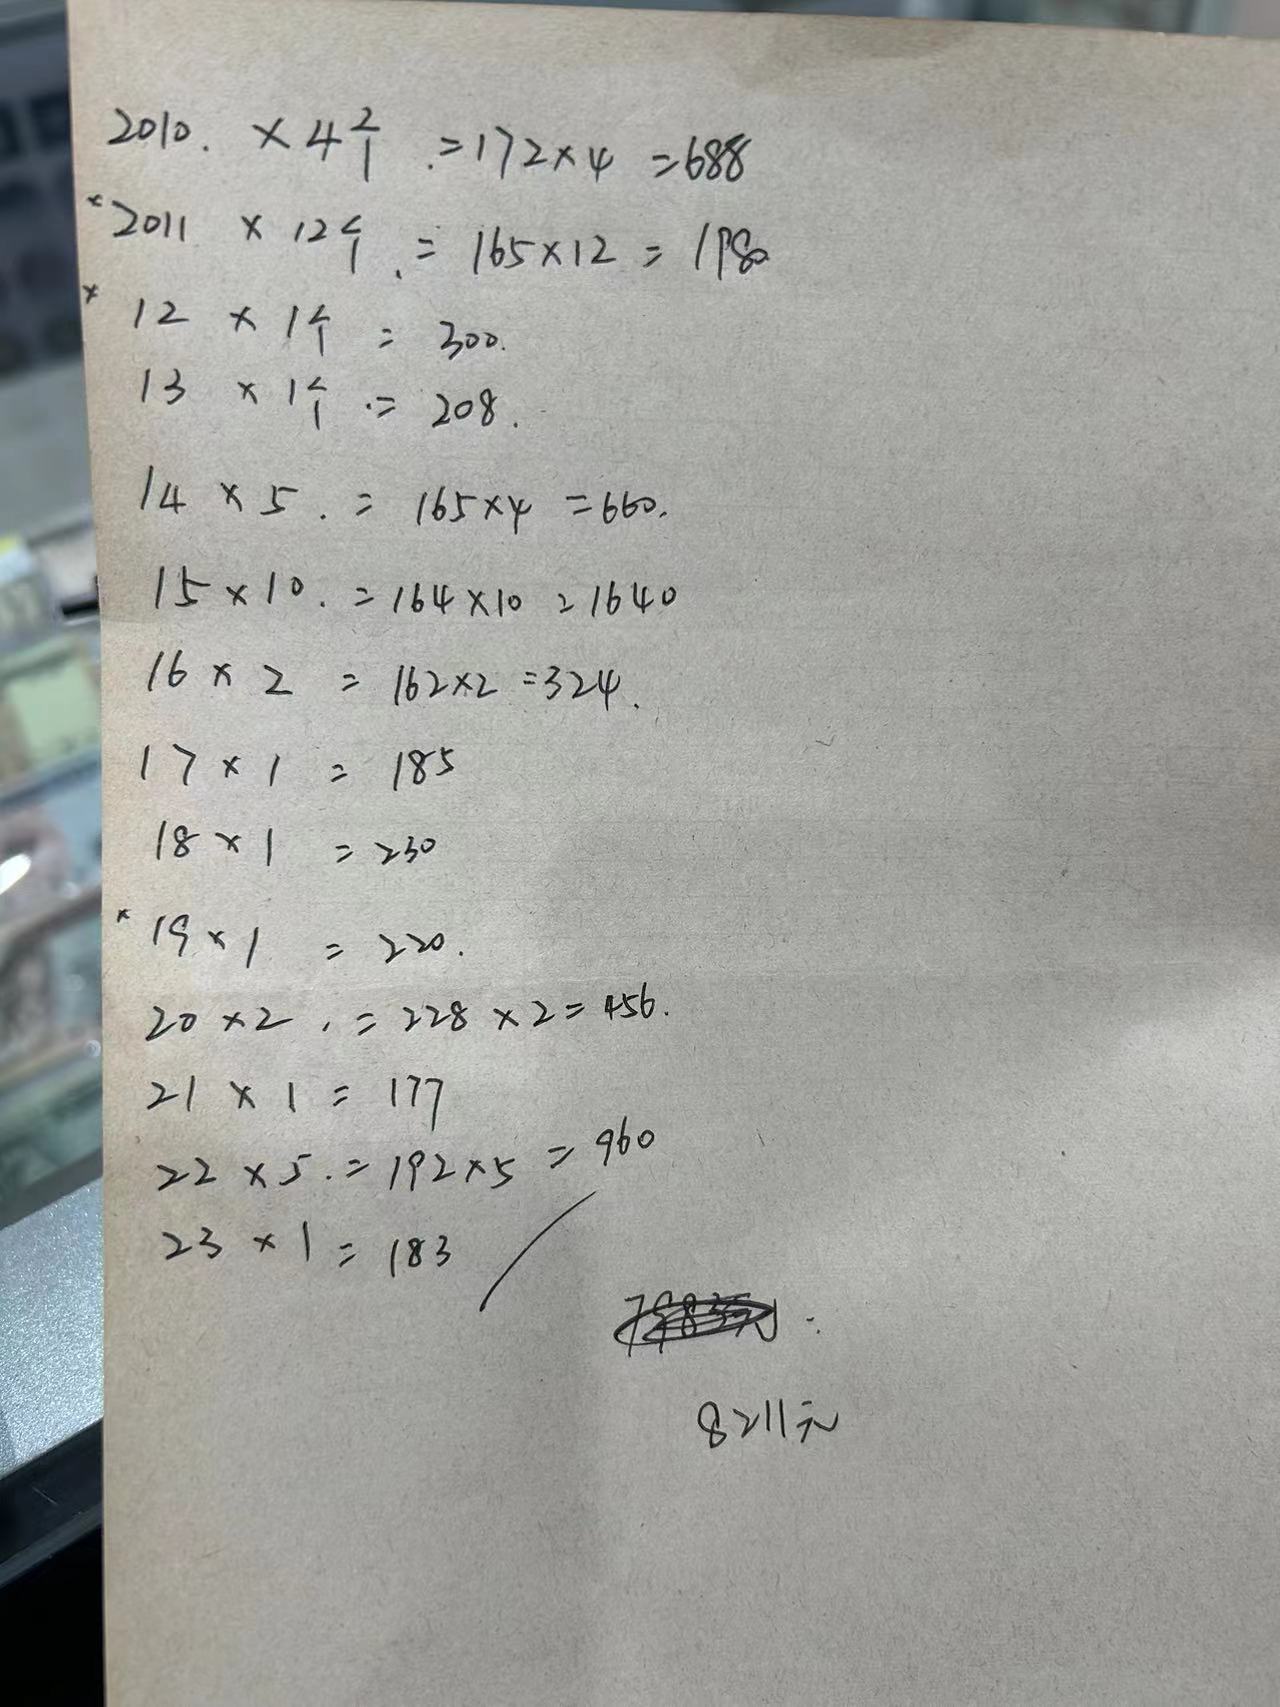 2010. × 4个 .=172×4 =688
×2011 × 12个 .= 165×12 = 1980
× 12 × 1个 = 300.
13 × 1个 .= 208.
14 × 5 . = 165×4 =660.
15×10 . =164×10 =1640
16 × 2 = 162×2 =324.
17 × 1 = 185
18 × 1 =230
× 19 × 1 = 220.
20 ×2 . = 228 ×2= 456.
21 × 1 = 177
22 × 5 .= 192×5 = 960
23 × 1 = 183
8211元